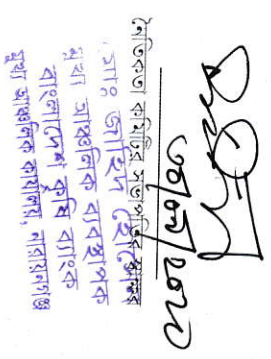 নৈতিকতা কমিটির সভাপতির স্বাক্ষর
মোঃ জাহিদ হোসেন
মুখ্য আঞ্চলিক ব্যবস্থাপক
বাংলাদেশ কৃষি ব্যাংক
মুখ্য আঞ্চলিক কার্যালয়, নারায়নগঞ্জ